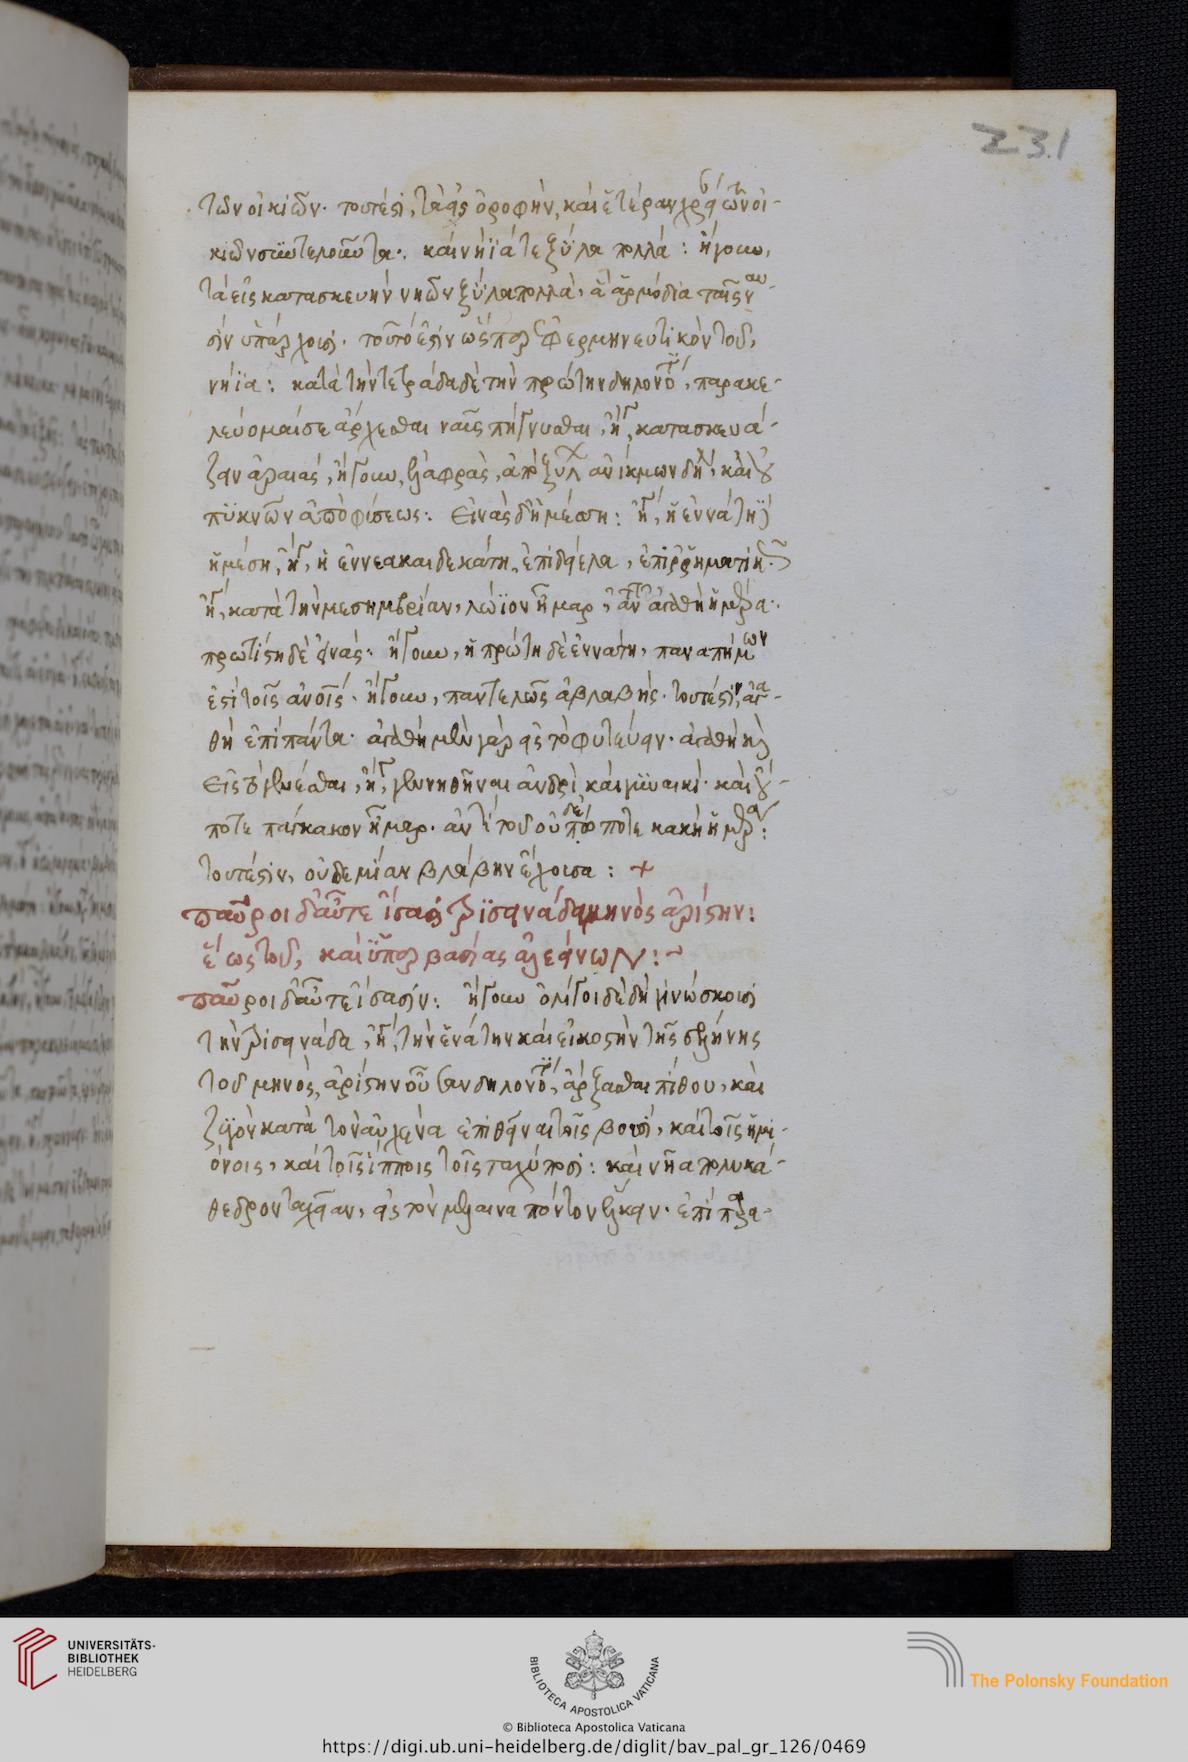 231
τῶν οἰκιῶν. τουτέστι, τὰ εἰς ὀροφὴν, καὶ ἑτέραν χρείαν τῶν οἰ-
κιῶν συντελοῦντα. καὶ νήϊά τε ξύλα πολλά: ἤγουν,
τὰ εἰς κατασκευὴν νηῶν ξύλα πολλὰ, ἃ ἁρμόδια ταῖς ναυ-
σὶν ὑπάρχουσι. τοῦτό ἐστιν ὥσπερ ἑρμηνευτικὸν τοῦ,
νήϊα: κατὰ τὴν τετράδα δὲ τὴν πρώτην δηλονότι, παρακε-
λεύομαί σε ἄρχεσθαι ναῦς πήγνυσθαι, ἤγουν, κατασκευά-
ζειν ἀραιάς, ἤγουν, ἐλαφρὰς, ἀπὸ ξύλων ἀνίκμων δηλαδὴ, καὶ οὐ
πυκνῶν ἀπὸ φύσεως. εἰνὰς δ' ἡ μέσση: ἤγουν, ἡ ἐννάτη ἡ
ἡ μέση, ἤγουν, ἡ ἐννεακαιδεκάτη, ἐπὶ δείελα, ἐπιρρηματικῶς.
ἤγουν, κατὰ τὴν μεσημβρίαν, λώϊον ἦμαρ, ἀντὶ τοῦ ἀγαθὴ ἡμέρα.
πρωτίστη δὲ εἰνάς. ἤγουν, ἡ πρώτη δὲ ἐννάτη, παναπήμων
ἐστὶ τοῖς ἀνθρώποις. ἤγουν, παντελῶς ἀβλαβής. τουτέστιν, ἀγα-
θὴ ἐπὶ πάντα. ἀγαθὴ μὲν γὰρ εἰς τὸ φυτεύειν. ἀγαθὴ καὶ
εἰς τὸ γενέσθαι, ἤγουν, γεννηθῆναι ἀνδρὶ καὶ γυναικί. καὶ οὔ-
ποτε πάγκακον ἦμαρ. ἀντὶ τοῦ οὐδέποτε κακὴ ἡμέρα:
τουτέστιν, οὐδεμίαν βλάβην ἔχουσα: +
παῦροι δ' αὖτε ἴσασι τρισεινάδα μηνὸς ἀρίστην:
ἕως τοῦ, καὶ ὑπερβασίας ἀλεείνων:~
παῦροι δ' αὖτε ἴσασιν: ἤγουν ὀλίγοι δὲ δὴ γινώσκουσι
τὴν τρισεινάδα, ἤγουν, τὴν ἐνάτην καὶ εἰκοστὴν τῆς σελήνης
τοῦ μηνὸς, ἀρίστην οὖσαν δηλονότι, ἄρξασθαι πίθου, καὶ
ζυγὸν κατὰ τὸν αὐχένα ἐπιθεῖναι τοῖς βουσὶ, καὶ τοῖς ἡμι-
όνοις, καὶ τοῖς ἵπποις τοῖς ταχύποσι: καὶ νῆα πολυκά-
θεδρον ταχεῖαν, εἰς τὸν μέλαινα πόντον ἕλκειν. ἐπὶ
UNIVERSITÄTS-
BIBLIOTHEK
HEIDELBERG
BIBLIOTECA APOSTOLICA VATICANA
The Polonsky Foundation
© Biblioteca Apostolica Vaticana
https://digi.ub.uni-heidelberg.de/diglit/bav_pal_gr_126/0469